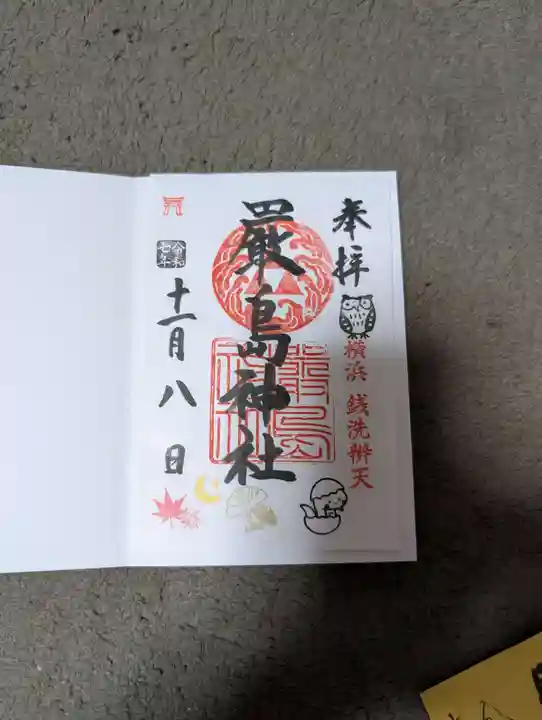 奉拝
横浜 銭洗辨天
嚴島神社
令和七年
十一月八日